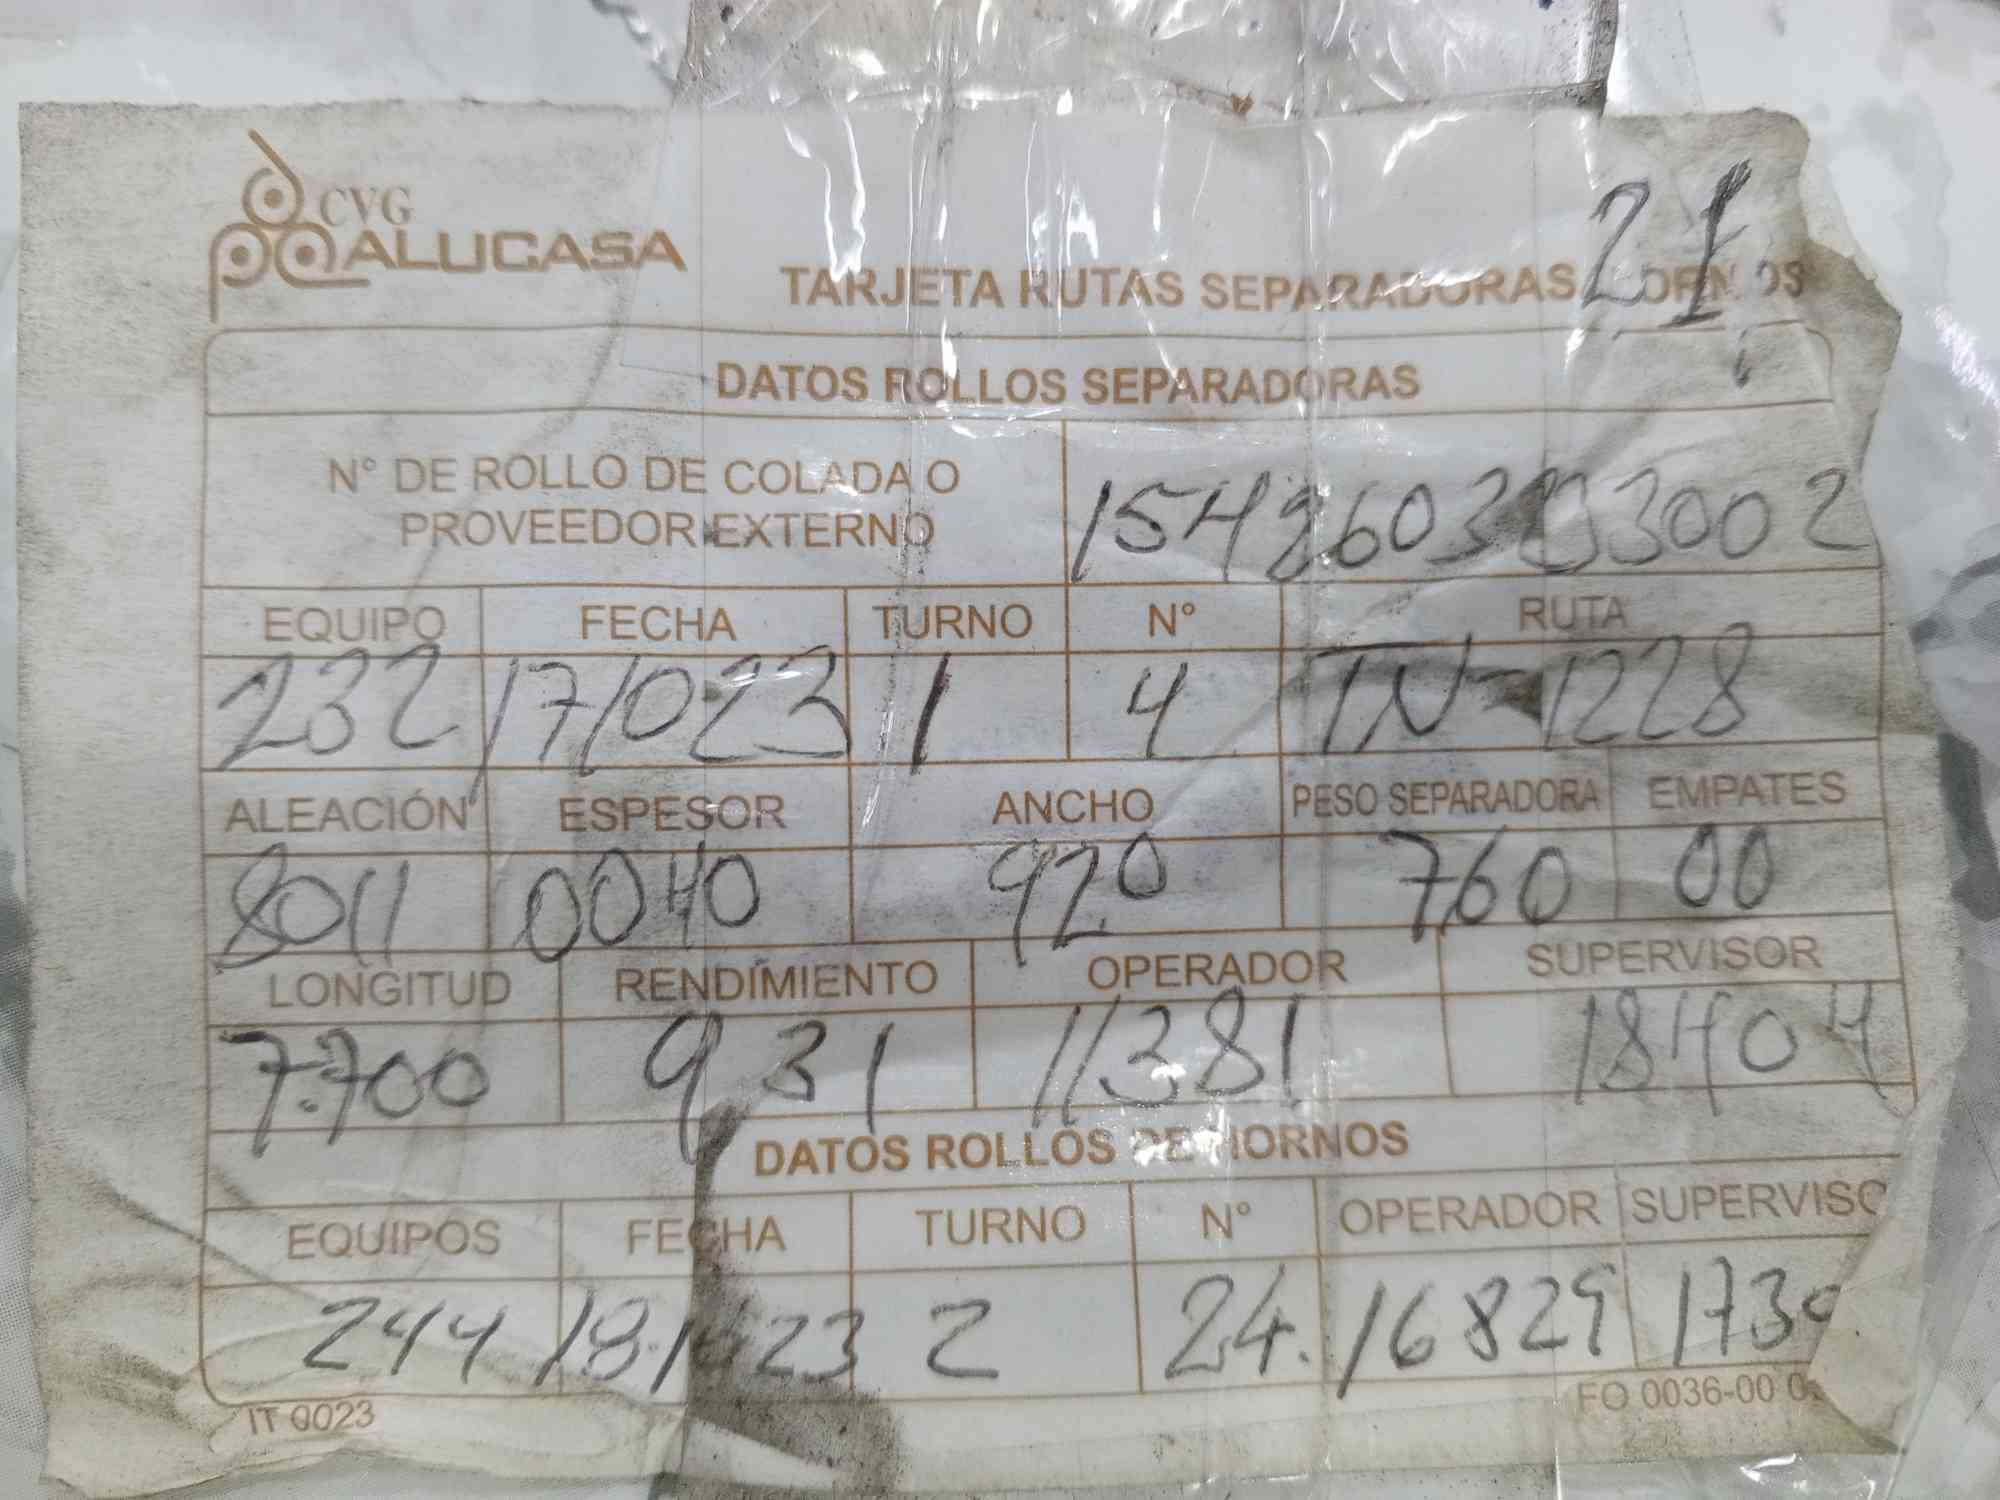 CVG
ALUCASA
21
TARJETA RUTAS SEPARADORAS HORNOS
DATOS ROLLOS SEPARADORAS
N° DE ROLLO DE COLADA O
PROVEEDOR EXTERNO
EQUIPO FECHA TURNO N° RUTA
232 171023 1 4 TN-1228
ALEACIÓN ESPESOR ANCHO PESO SEPARADORA EMPATES
8011 0040 920 760 00
LONGITUD RENDIMIENTO OPERADOR SUPERVISOR
7.700 931 11381 18404
DATOS ROLLOS DE HORNOS
EQUIPOS FECHA TURNO N° OPERADOR SUPERVISO
244 2 24. 16829
IT 0023 FO 0036-00